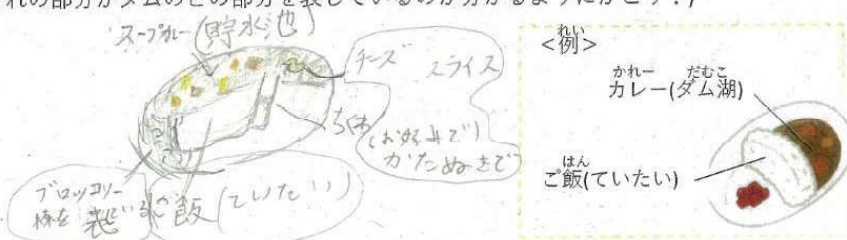 れの部分がダムのどの部分を表しているのか分かるようにかこう！)
スープカレー(貯水池)
チーズ スライス
ちくわ
(お好みで)
かたぬきで
ブロッコリー
林を表している
ご飯(ていたい)
<例>
かれー だむこ
カレー(ダム湖)
はん
ご飯(ていたい)